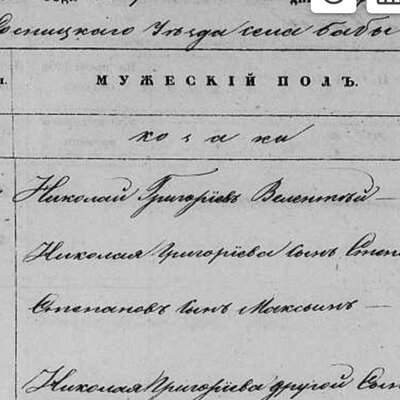 сницкаго Уѣзда села бабы
МУЖЕСКІЙ ПОЛЪ.
козаки
Николай Григоріевъ Велентѣй —
Николая Григоріева сынъ Степ
Степановъ сынъ Максимъ —
Николая Григоріева другой сын